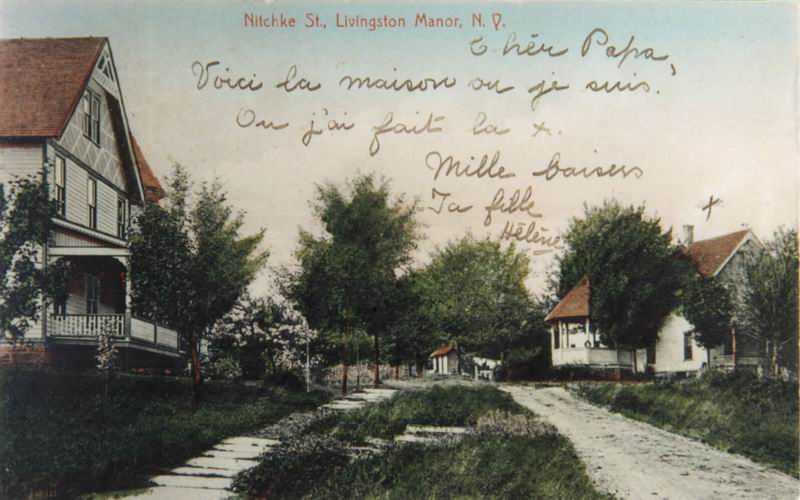 Nitchke St., Livingston Manor, N. Y.
Cher Papa,
Voici la maison ou je suis.
Ou j'ai fait la x.
Mille baisers
Ta fille
Hélène
x